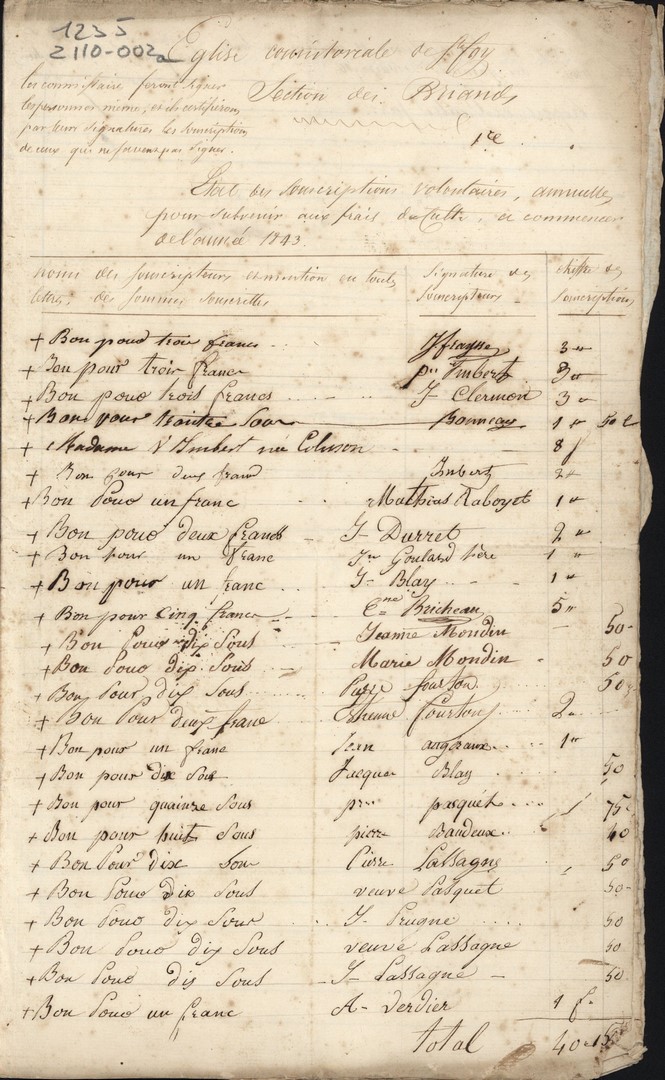 1235
2110-002a
Eglise consistoriale de Ste foy
Section des Briands
1re
les commissaire feront signer
les personnes même, et ils certifieront
par leur signatures les souscriptions
de ceux qui ne savent pas signer.
Etat des souscriptions volontaires, annuelles
pour subvenir aux frais du Culte, a commencer
de l'année 1843.
noms des souscripteurs et mention en toutes
lettres, des sommes souscrittes
Signature des
souscripteurs
Chiffre des
souscriptions
+ Bon pour trois francs Jfraysse 3 "
+ Bon pour trois francs pre Imbert 3 "
+ Bon pouo trois francs J Clermon 3 "
+ Bon pour trantes Sous Bonneau 1 " 50 c
+ Madame V Imbert née 8 f
+ Bon pour deux franc Imbert 2 "
+ Bon pouo un franc Mathias Raboyet 1 "
+ Bon pouo deux francs J Durret 2 "
+ Bon pour un franc Jn Goulard père 1 "
+ Bon pouo un franc J Blay 1 "
+ Bon pour cinq francs Bricheau 5 "
+ Bon pouo dix sous Jeanne Mondin 50
+ Bon pouo dix sous Marie Mondin 50
+ Bon pour dix sous Pierre fourton 50
+ Bon pour deux franc Etienne Fourton 2 "
+ Bon pour un franc Jean augeraux 1 "
+ Bon pour dix sous Jacques Blay 50
+ Bon pour quainze sous pre pasquét 75
+ Bon pour huit sous pierre Baudeux 40
+ Bon pour dix sou Pierre Lassagne 50
+ Bon pouo dix sous veuve Pasquet 50
+ Bon pouo dix sous J Prugne 50
+ Bon pouo dix sous veuve Lassagne 50
+ Bon pouo dix sous J Lassagne 50
+ Bon pouo un franc A Verdier 1 f
total 40 " 15